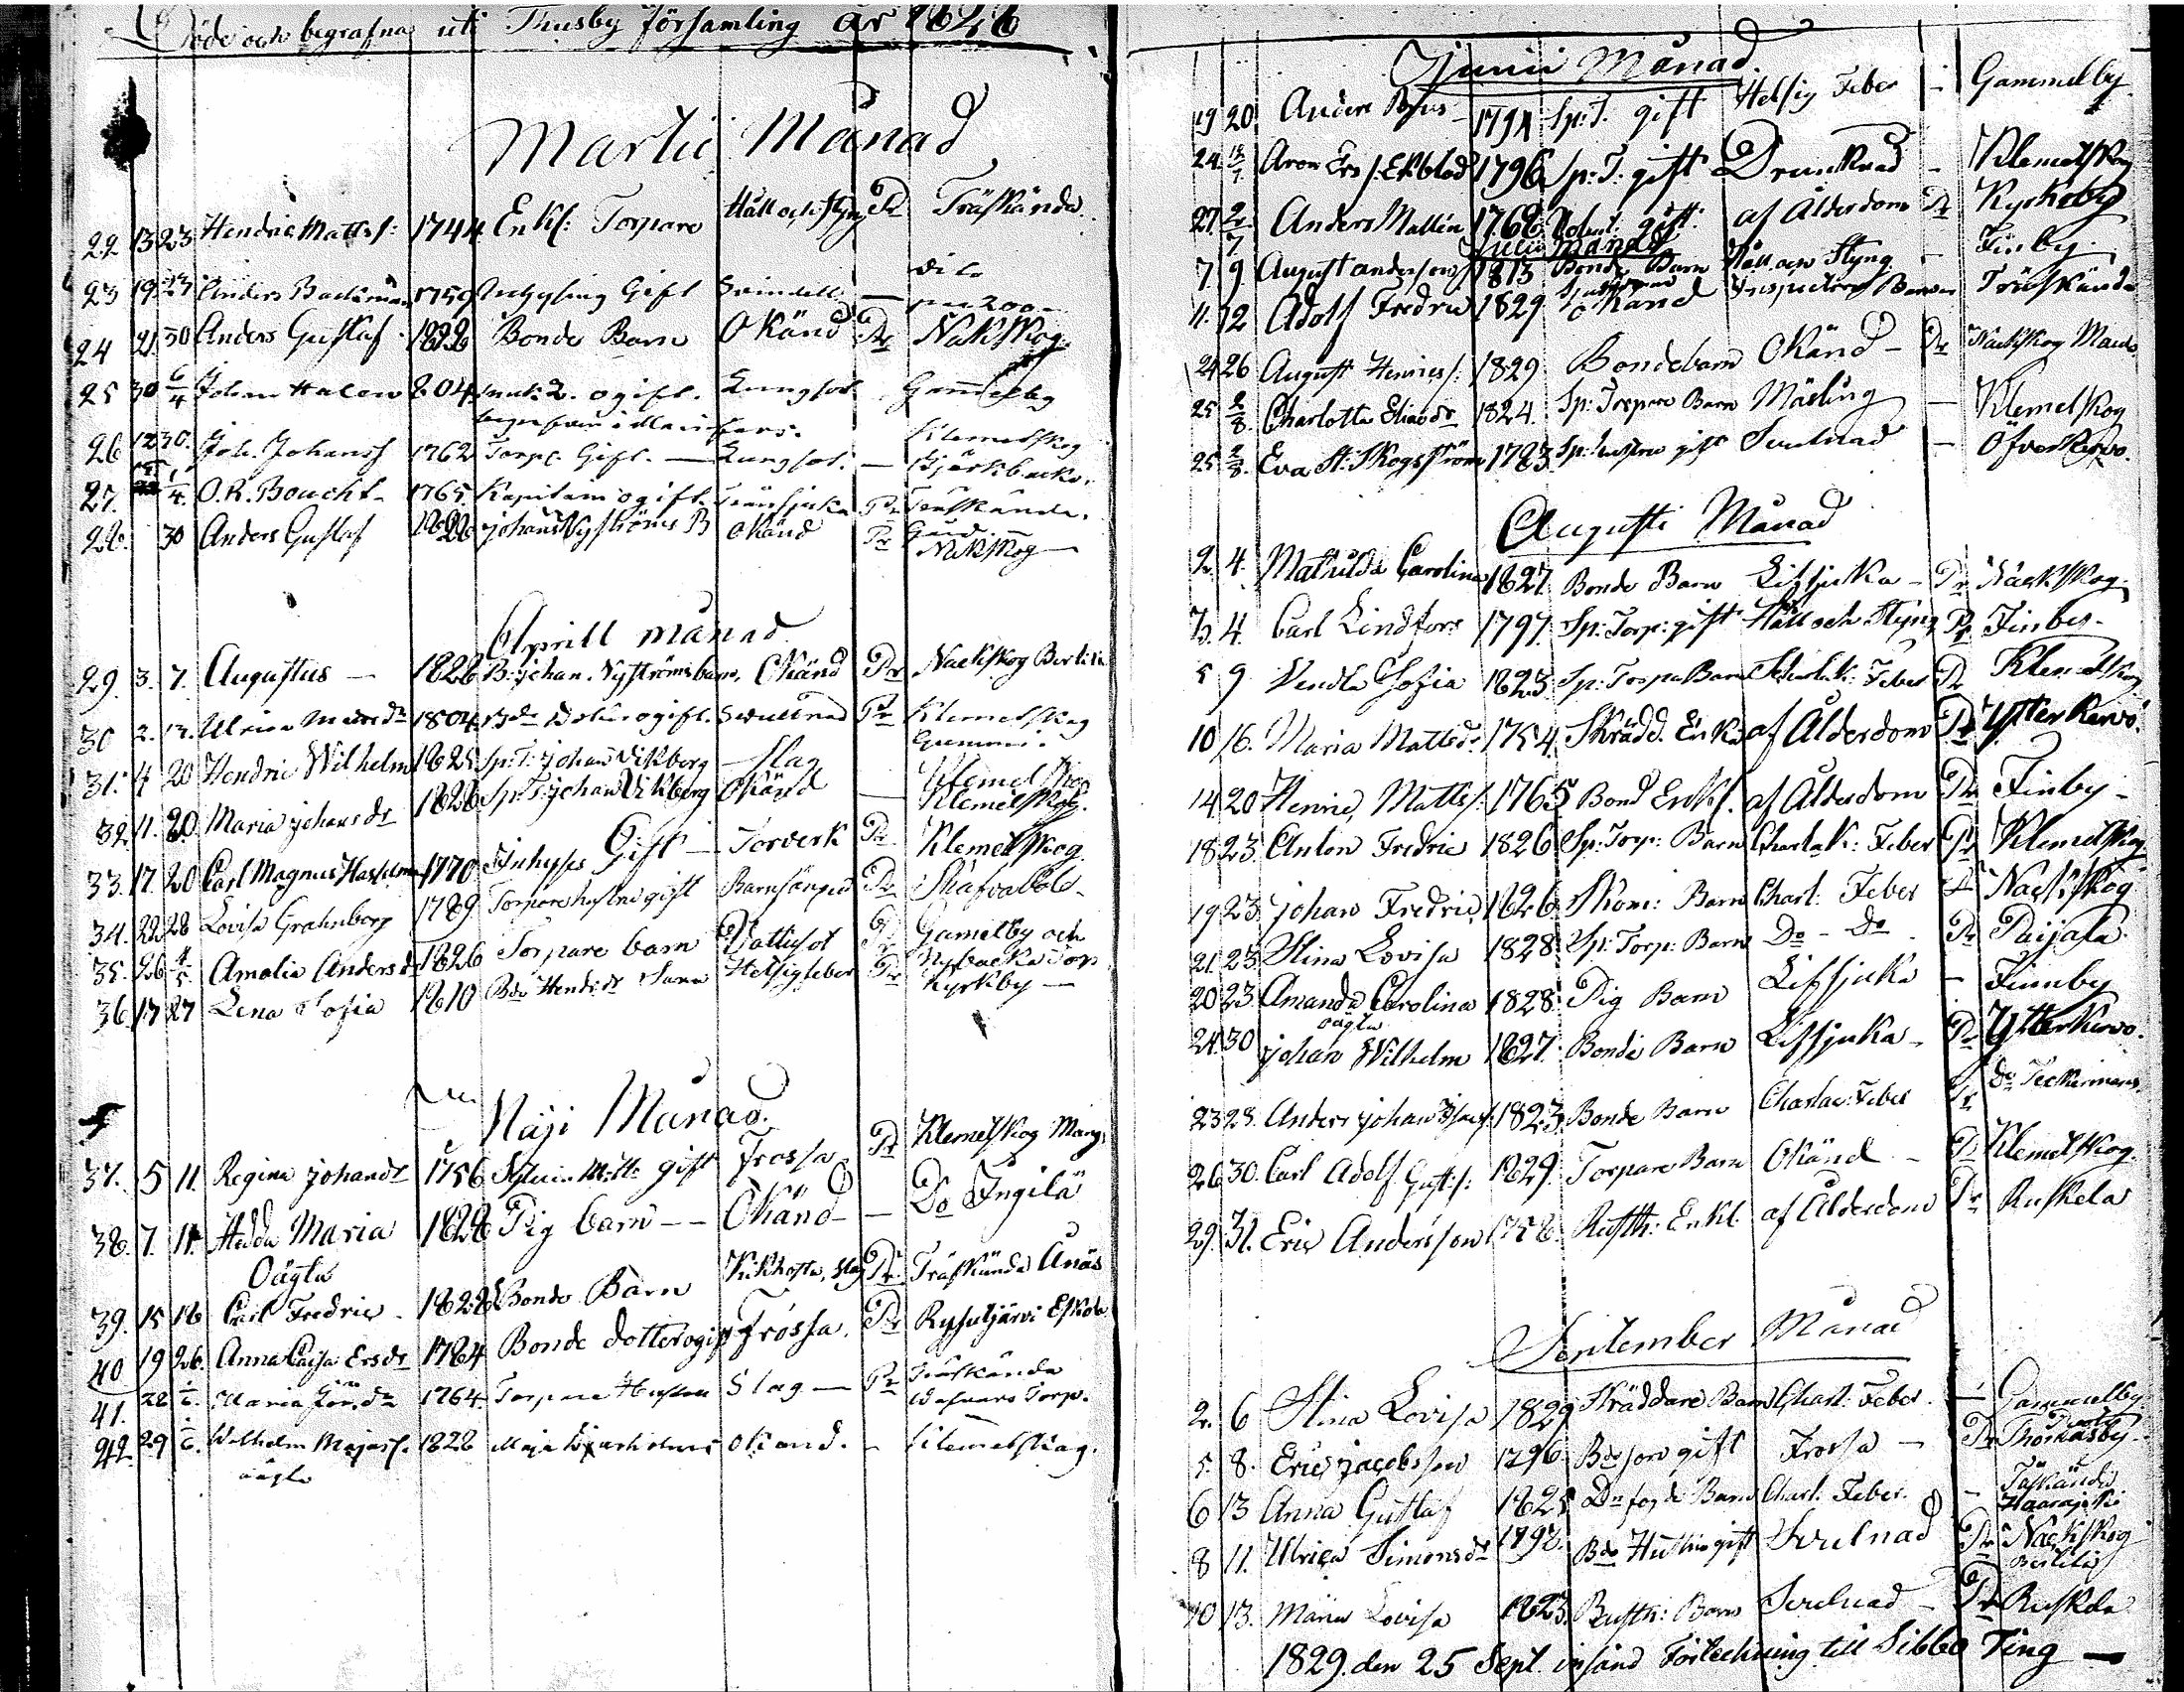 Döde och begrafna uti Thusby församling år 1828
Martii Månad
22 13 23 Hendric Matts s: 1744 Enkl: Torpare Håll och Styng Pr Träskända
23 19 Anders Backman 1759 Inhysing Gift Svindell — dito
24 21 30 Anders Gustaf 1828 Bonde Barn Okänd Pr Nakskog
25 30 6/4 Johan Halen 804 ogift. Lungsot Gammelby
26 12 30 Joh. Johanss 1762 Torp. Gift. — Lungsot. — Klemetskog Björkbacka.
27. 1/4. O.R. Boucht 1765. Kapitain ogift. Pr Träskända.
28. 30 Anders Gustaf 1828 johans Nyströms B okänd Pr Nakskog
Aprill månad
29. 3. 7. Augustus — 1828 B: johan. Nyströms barn, Okänd Pr Nackskog Bertila
30 2. 13. Ulrica Mattsdr 1804 ogift. Svullnad Pr Klemetskog
31. 4 20 Hendric Wilhelm 1825 Sp: T: johan Vikberg Slag Klemetskog
32 11. 20. Maria johansdr 1828 Sp: T: johan Vikberg Okänd — Klemetskog.
33. 17. 20 Carl Magnus 1770 Inhyses Gift — Torverk Pr Klemetskog
34. 22 28 Lovisa Grahnberg 1789 Torpare hustru gift Barnsängen Pr Skafvaböle
35. 26 4/5 Amalia Andersdr 1826 Torpare barn Vattusot Pr Gamelby och Nybacka Torp
36. 17 27 Lena Sofia 1810 Hetsigfeber Pr Kyrkby —
Maji Månad.
37. 5 11. Regina johandr 1756 gift Frossa Pr Klemetskog Mang
38. 7. 11. Hedda Maria 1828 Pig barn — — Okänd — — Do Ingilä
Oägta
39. 15 18 Carl Fredric 1828 Bonde Barn Kikhosta, slag Pr. Träskända Anäs
40 19 26. Anna Caisa Ersdr 1784 Bonde dotter ogift Frossa. Pr Rusutjärvi Eskola
41. 28 1/6. Maria 1764 Torpare Hustru Slag — Pr Träskända Torp.
42. 29 1/6. Wilhelm Majass. 1828 okänd. — Klemetskog.
oägta
Junii Månad.
19 20 Anders 1794 Sp: T. gift Hetsig Feber — Gammelby
24. 12/7. Aron Ers s: Ekblad 1796 Sp: T: gift Drunknad — Klemetskog
27. 2/7. Anders Mallin 1768 gift. af Ålderdom Pr Kyrkoby
Julii Månad
7 9 August andersson 1813 Bonde Barn Håll och Styng — Finby.
11. 12 Adolf Fredric 1829 Okänd Inspectors Barn Träskända
24 26 August Henrics s: 1829 Bondebarn Okänd — Pr Nackskog
25 2/8. Charlotta Eliasdr 1824. Sp: Torpare Barn Mäsling — Klemetskog
25 2/8. Eva St: Skogström 1783 Sp: hustru gift Svulnad — Öfverkervo.
Augusti Månad
2. 4. Mathilda Carolina 1827. Bonde Barn Lifsjuka — Pr Nackskog
3. 4. Carl Lindfors 1797. Sp: Torp: gift Håll och Styng Pr Finby —
5 9 Vendla Sofia 1823 Sp: Torpa Barn Skarlak: Feber Pr Klemetskog
10 16. Maria Mattsdr 1754. Skrädd. Enka af Ålderdom Pr Ytterkervo
14 20 Henric Matts s: 1765 Bond Enkl. af Ålderdom Pr Finby —
18 23 Anton Fredric 1826 Sp: Torp: Barn Charlak: Feber Pr Klemetskog
19 23 johan Fredric 1826 Skom: Barn Charl: Feber Nackskog
21. 23 Stina Lovisa 1828 Sp: Torp: Barn Do — Do Pr Paijala
20 23 Amanda Carolina 1828: Pig Barn Lifsjuka — Finnby
oägta
24. 30 johan Wilhelm 1827. Bonde Barn Lifsjuka — Pr Ytterkervo.
23 28. Anders johan 1823 Bonde Barn Charlac: Feber Pr Do Teckermans
26 30. Carl Adolf Gust: s: 1829. Torpare Barn Okänd — Pr Klemetskog.
29. 31. Eric Andersson 1758. Rusth: Enkl. af Ålderdom Pr Ruskela
September Månad
2. 6 Stina Lovisa 1829 Skräddare Barn Charl: Feber. — Gammelby.
5. 8. Eric jacobsson 1796 Bdeson gift Frossa — Pr Thomasby
6 13 Anna Gustaf 1825 Barn Charl: Feber. — Träskända
8 11. Ulrica Simonsdr 1792. Bde Hustru gift Svulnad Pr Nackskog Bertila
10 13. Maria Lovisa 1823. Rusth: Barn Svulnad — Pr Ruskela
1829. den 25 Sept. insänd Förteckning till Sibbo Ting —